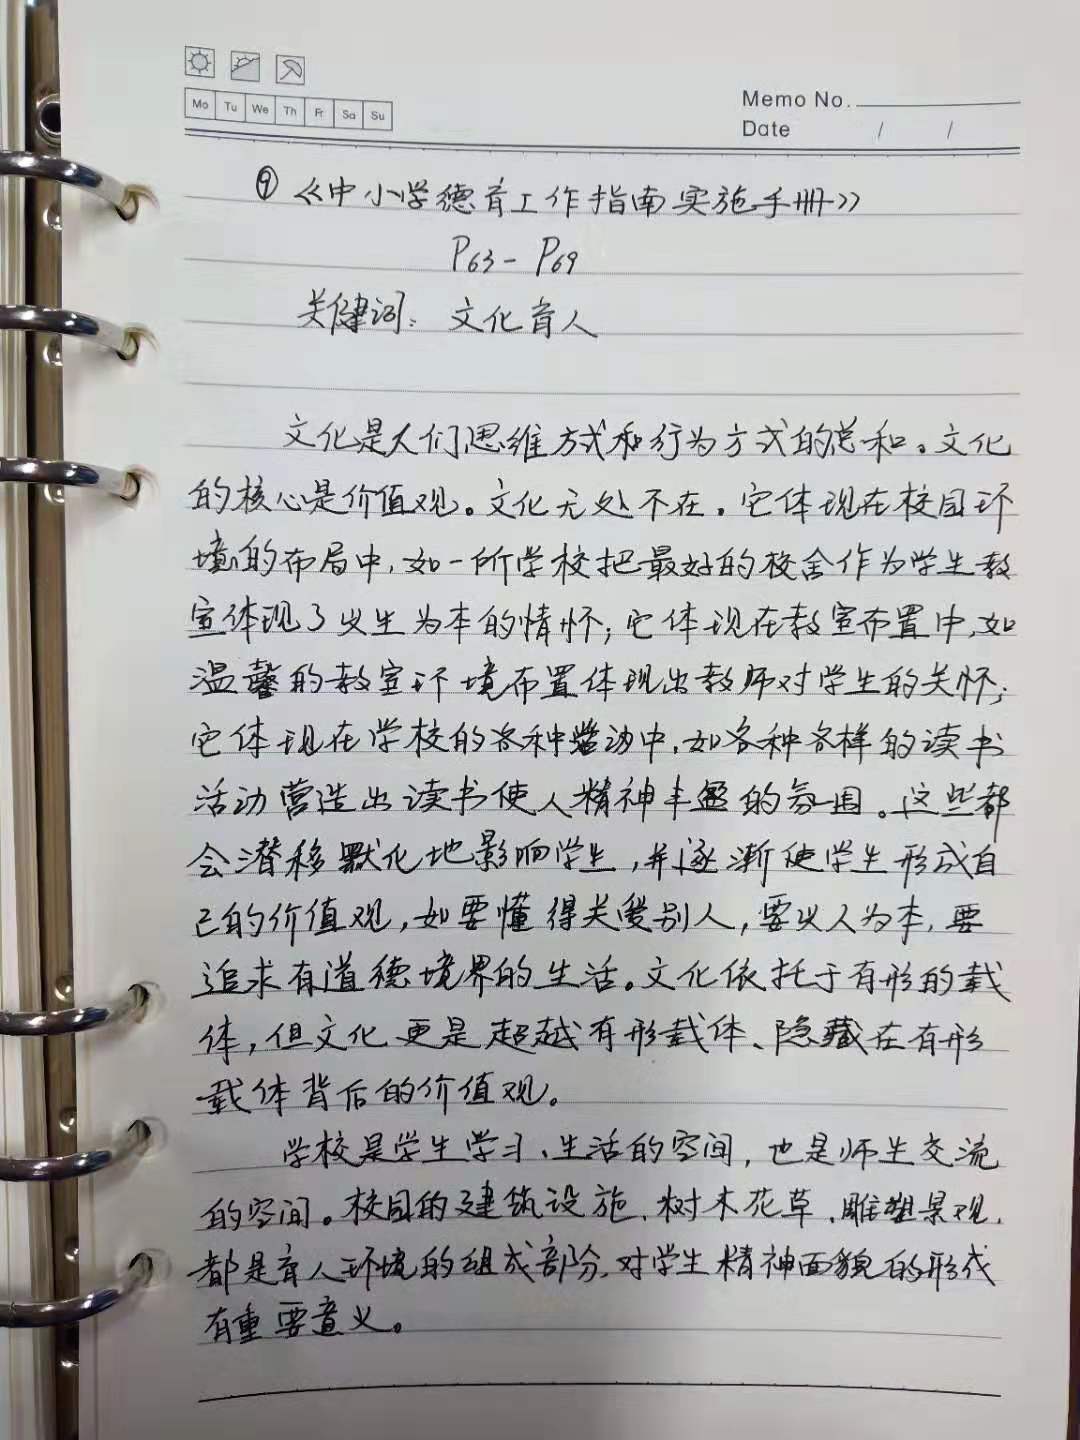 Mo Tu We Th Fr Sa Su
Memo No.
Date / /
⑨《中小学德育工作指南实施手册》
P63-P69
关键词：文化育人
文化是人们思维方式和行为方式的总和。文化
的核心是价值观。文化无处不在。它体现在校园环
境的布局中，如一所学校把最好的校舍作为学生教
室体现了以生为本的情怀；它体现在教室布置中，如
温馨的教室环境布置体现出教师对学生的关怀；
它体现在学校的各种活动中，如各种各样的读书
活动营造出读书使人精神丰盈的氛围。这些都
会潜移默化地影响学生，并逐渐使学生形成自
己的价值观，如要懂得关爱别人，要以人为本，要
追求有道德境界的生活。文化依托于有形的载
体，但文化更是超越有形载体、隐藏在有形
载体背后的价值观。
学校是学生学习、生活的空间，也是师生交流
的空间。校园的建筑设施、树木花草、雕塑景观，
都是育人环境的组成部分，对学生精神面貌的形成
有重要意义。